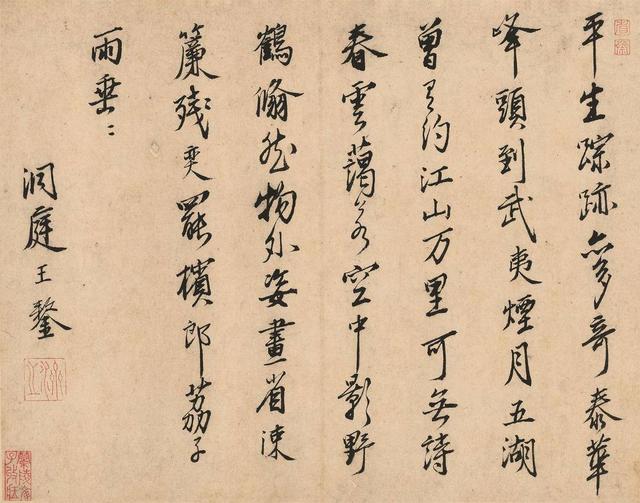 平生踪跡亦多奇泰華
峰頭到武夷煙月五湖
曾有約江山万里可無詩
春雲藹若空中影野
鶴翛然物外姿畫省疎
簾殘奕罷檳郎荔子
雨垂〻
洞庭王鏊